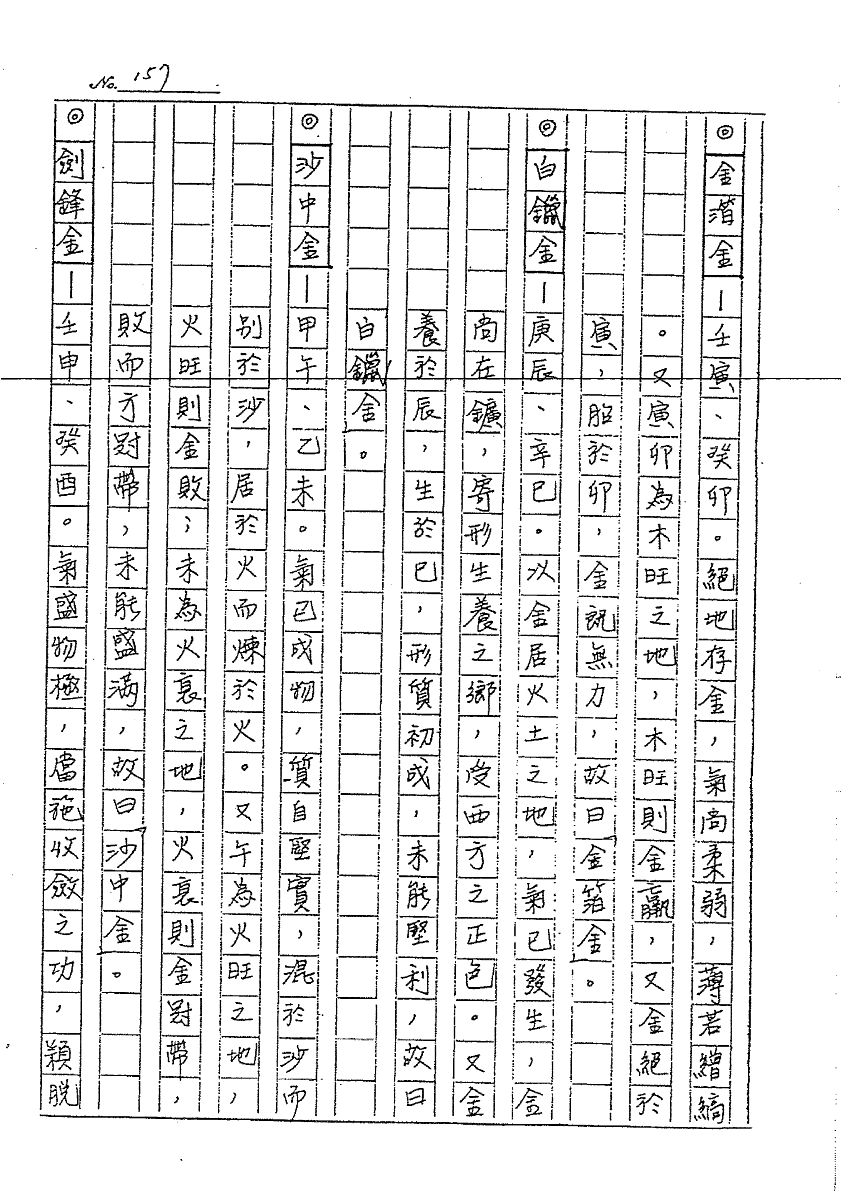 No. 157
◎金箔金—壬寅、癸卯。絕地存金,氣尚柔弱,薄若繒縞
。又寅卯為木旺之地,木旺則金羸,又金絕於
寅,胎於卯,金既無力,故曰「金箔金」。
◎白鑞金—庚辰、辛巳。以金居火土之地,氣已發生,金
尚在鑛,寄形生養之鄉,受西方之正色。又金
養於辰,生於巳,形質初成,未能堅利,故曰
白鑞金。
◎沙中金—甲午、乙未。氣已成物,質自堅實,混於沙而
別於沙,居於火而煉於火。又午為火旺之地,
火旺則金敗;未為火衰之地,火衰則金冠帶,
敗而方冠帶,未能盛滿,故曰「沙中金。
◎劍鋒金—壬申、癸酉。氣盛物極,當施收斂之功,穎脫